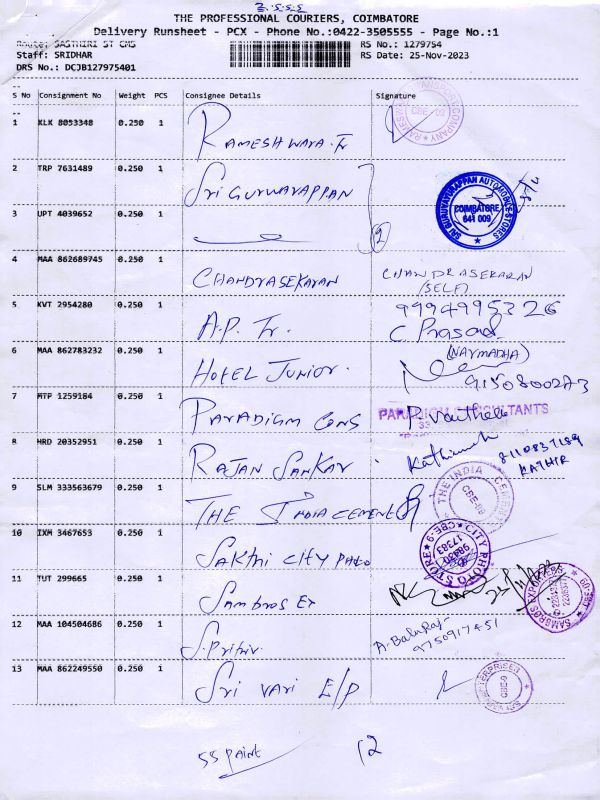 THE PROFESSIONAL COURIERS, COIMBATORE
Delivery Runsheet - PCX - Phone No.:0422-3505555 - Page No.:1
Route: SASTHIRI ST CMS
RS No.: 1279754
Staff: SRIDHAR
RS Date: 25-Nov-2023
DRS No.: DCJB127975401
S No Consignment No Weight PCS Consignee Details Signature
1 KLK 8053348 0.250 1 RAMESHWARA. Tr
CBE-09
2 TRP 7631489 0.250 1 Sri GURUVAYAPPAN
SRI GURUVAYURAPPAN AUTOMOBILE STORES COIMBATORE 641 009
3 UPT 4039652 0.250 1 2
4 MAA 862689745 0.250 1 CHANDRASEKARAN CHANDRASEKARAN
(SELF)
5 KVT 2954280 0.250 1 A.P. Tr. 9994995326
C. Prasad
6 MAA 862783232 0.250 1 HOTEL JUNIOR. (NARMADHA)
9150800273
7 MTP 1259184 0.250 1 PARADIGM CONS
PARADIGM CONSULTANTS
8 HRD 20352951 0.250 1 RAJAN SANKAR
KATHIR
9 SLM 333563679 0.250 1 THE INDIA CEMENT
THE INDIA CEMENTS
10 IXM 3467653 0.250 1 SAKTHI CITY PHOTO
CITY PHOTO STORE CBE-9
11 TUT 299665 0.250 1 SAMBROS EX
SAMBROS EXPORTERS
12 MAA 104504686 0.250 1 S. Prithiv. A. BalaRaji
9750917451
13 MAA 862249550 0.250 1 Sri VARI E/P
CBE-9
12